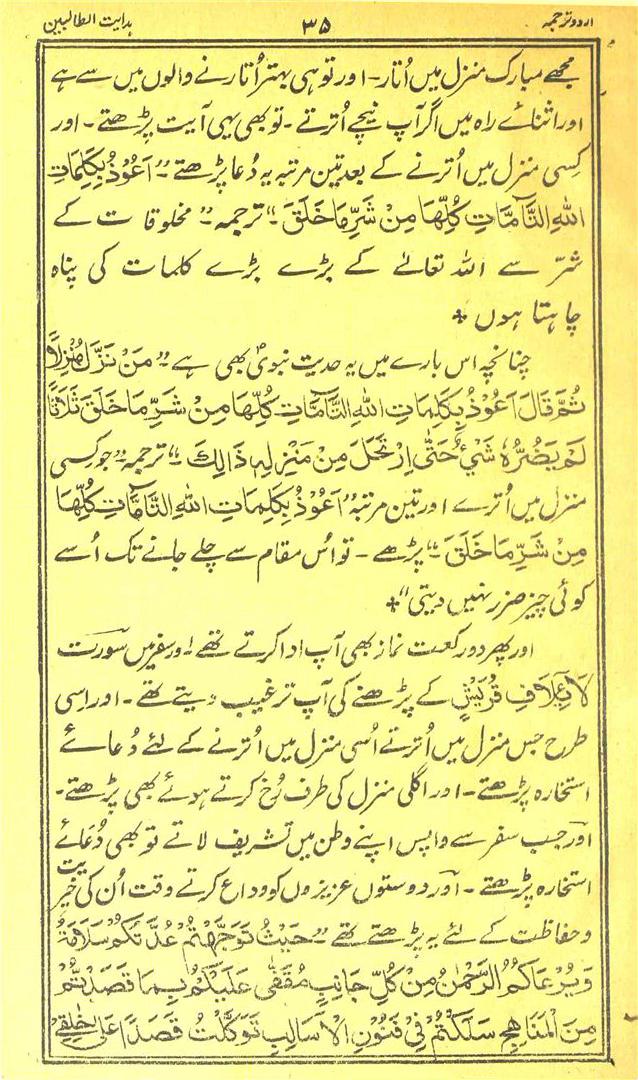 اردو ترجمہ ۳۵ ہدایت الطالبین
مجھے مبارک منزل میں اُتار۔ اور تو ہی بہتر اُتارنے والوں میں سے ہے
اور اثنائے راہ میں اگر آپ نیچے اُترتے۔ تو بھی یہی آیت پڑھتے۔ اور
کسی منزل میں اُترنے کے بعد تین مرتبہ یہ دُعا پڑھتے "اَعُوْذُ بِكَلِمَاتِ
اللهِ التَّآمَّاتِ كُلِّهَا مِنْ شَرِّ مَا خَلَقَ" ترجمہ "مخلوقات کے
شرّ سے اللہ تعالےٰ کے بڑے بڑے کلمات کی پناہ
چاہتا ہوں ٭
چنانچہ اس بارے میں یہ حدیث نبویؐ بھی ہے "مَنْ نَزَّلَ مُنْزِلًا
ثُمَّ قَالَ اَعُوْذُ بِكَلِمَاتِ اللهِ التَّآمَّاتِ كُلِّهَا مِنْ شَرِّ مَا خَلَقَ ثَلَاثًا
لَمْ يَضُرُّهٗ شَيْءٌ حَتّٰى اِرْتَحَلَ مِنْ مَنْزِلِهٖ ذَالِكَ" ترجمہ "جو کسی
منزل میں اُترے اور تین مرتبہ "اَعُوْذُ بِكَلِمَاتِ اللهِ التَّآمَّاتِ كُلِّهَا
مِنْ شَرِّ مَا خَلَقَ" پڑھے۔ تو اُس مقام سے چلے جانے تک اُسے
کوئی چیز ضرر نہیں دیتی" ٭
اور پھر دو رکعت نماز بھی آپ ادا کرتے تھے۔ اور سفر میں سورت
لَاِيْلَافِ قُرَيْشٍ کے پڑھنے کی آپ ترغیب دیتے تھے۔ اور اسی
طرح جس منزل میں اُترتے اُسی منزل میں اُترنے کے لئے دُعائے
استخارہ پڑھتے۔ اور اگلی منزل کی طرف رُخ کرتے ہوئے بھی پڑھتے۔
اور جب سفر سے واپس اپنے وطن میں تشریف لاتے تو بھی دُعائے
استخارہ پڑھتے۔ اور دوستوں عزیزوں کو وداع کرتے وقت اُن کی خیریت
و حفاظت کے لئے یہ پڑھتے تھے "حَيْثُ تَوَجَّهْتُمْ عُدَّتُكُمْ سَلَامَةٌ
وَيَرْعَاكُمُ الرَّحْمٰنُ مِنْ كُلِّ جَانِبٍ مُقَفّٰى عَلَيْكُمْ بِمَا قَصَدْتُمْ
مِنَ الْمَنَاهِجِ سَلَكْتُمْ فِيْ فُنُوْنِ الْاَسَالِبِ تَوَكَّلْتُ قَصَدًا عَلٰى خَلْقِيْ